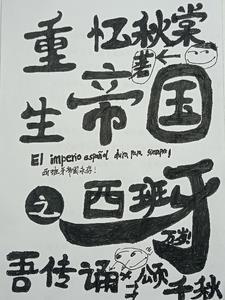 重生
忆秋棠
著
帝国
El imperio español dura para siempre!
西班牙帝国永存!
之
西班牙
万岁!
吾传诵
颂千秋